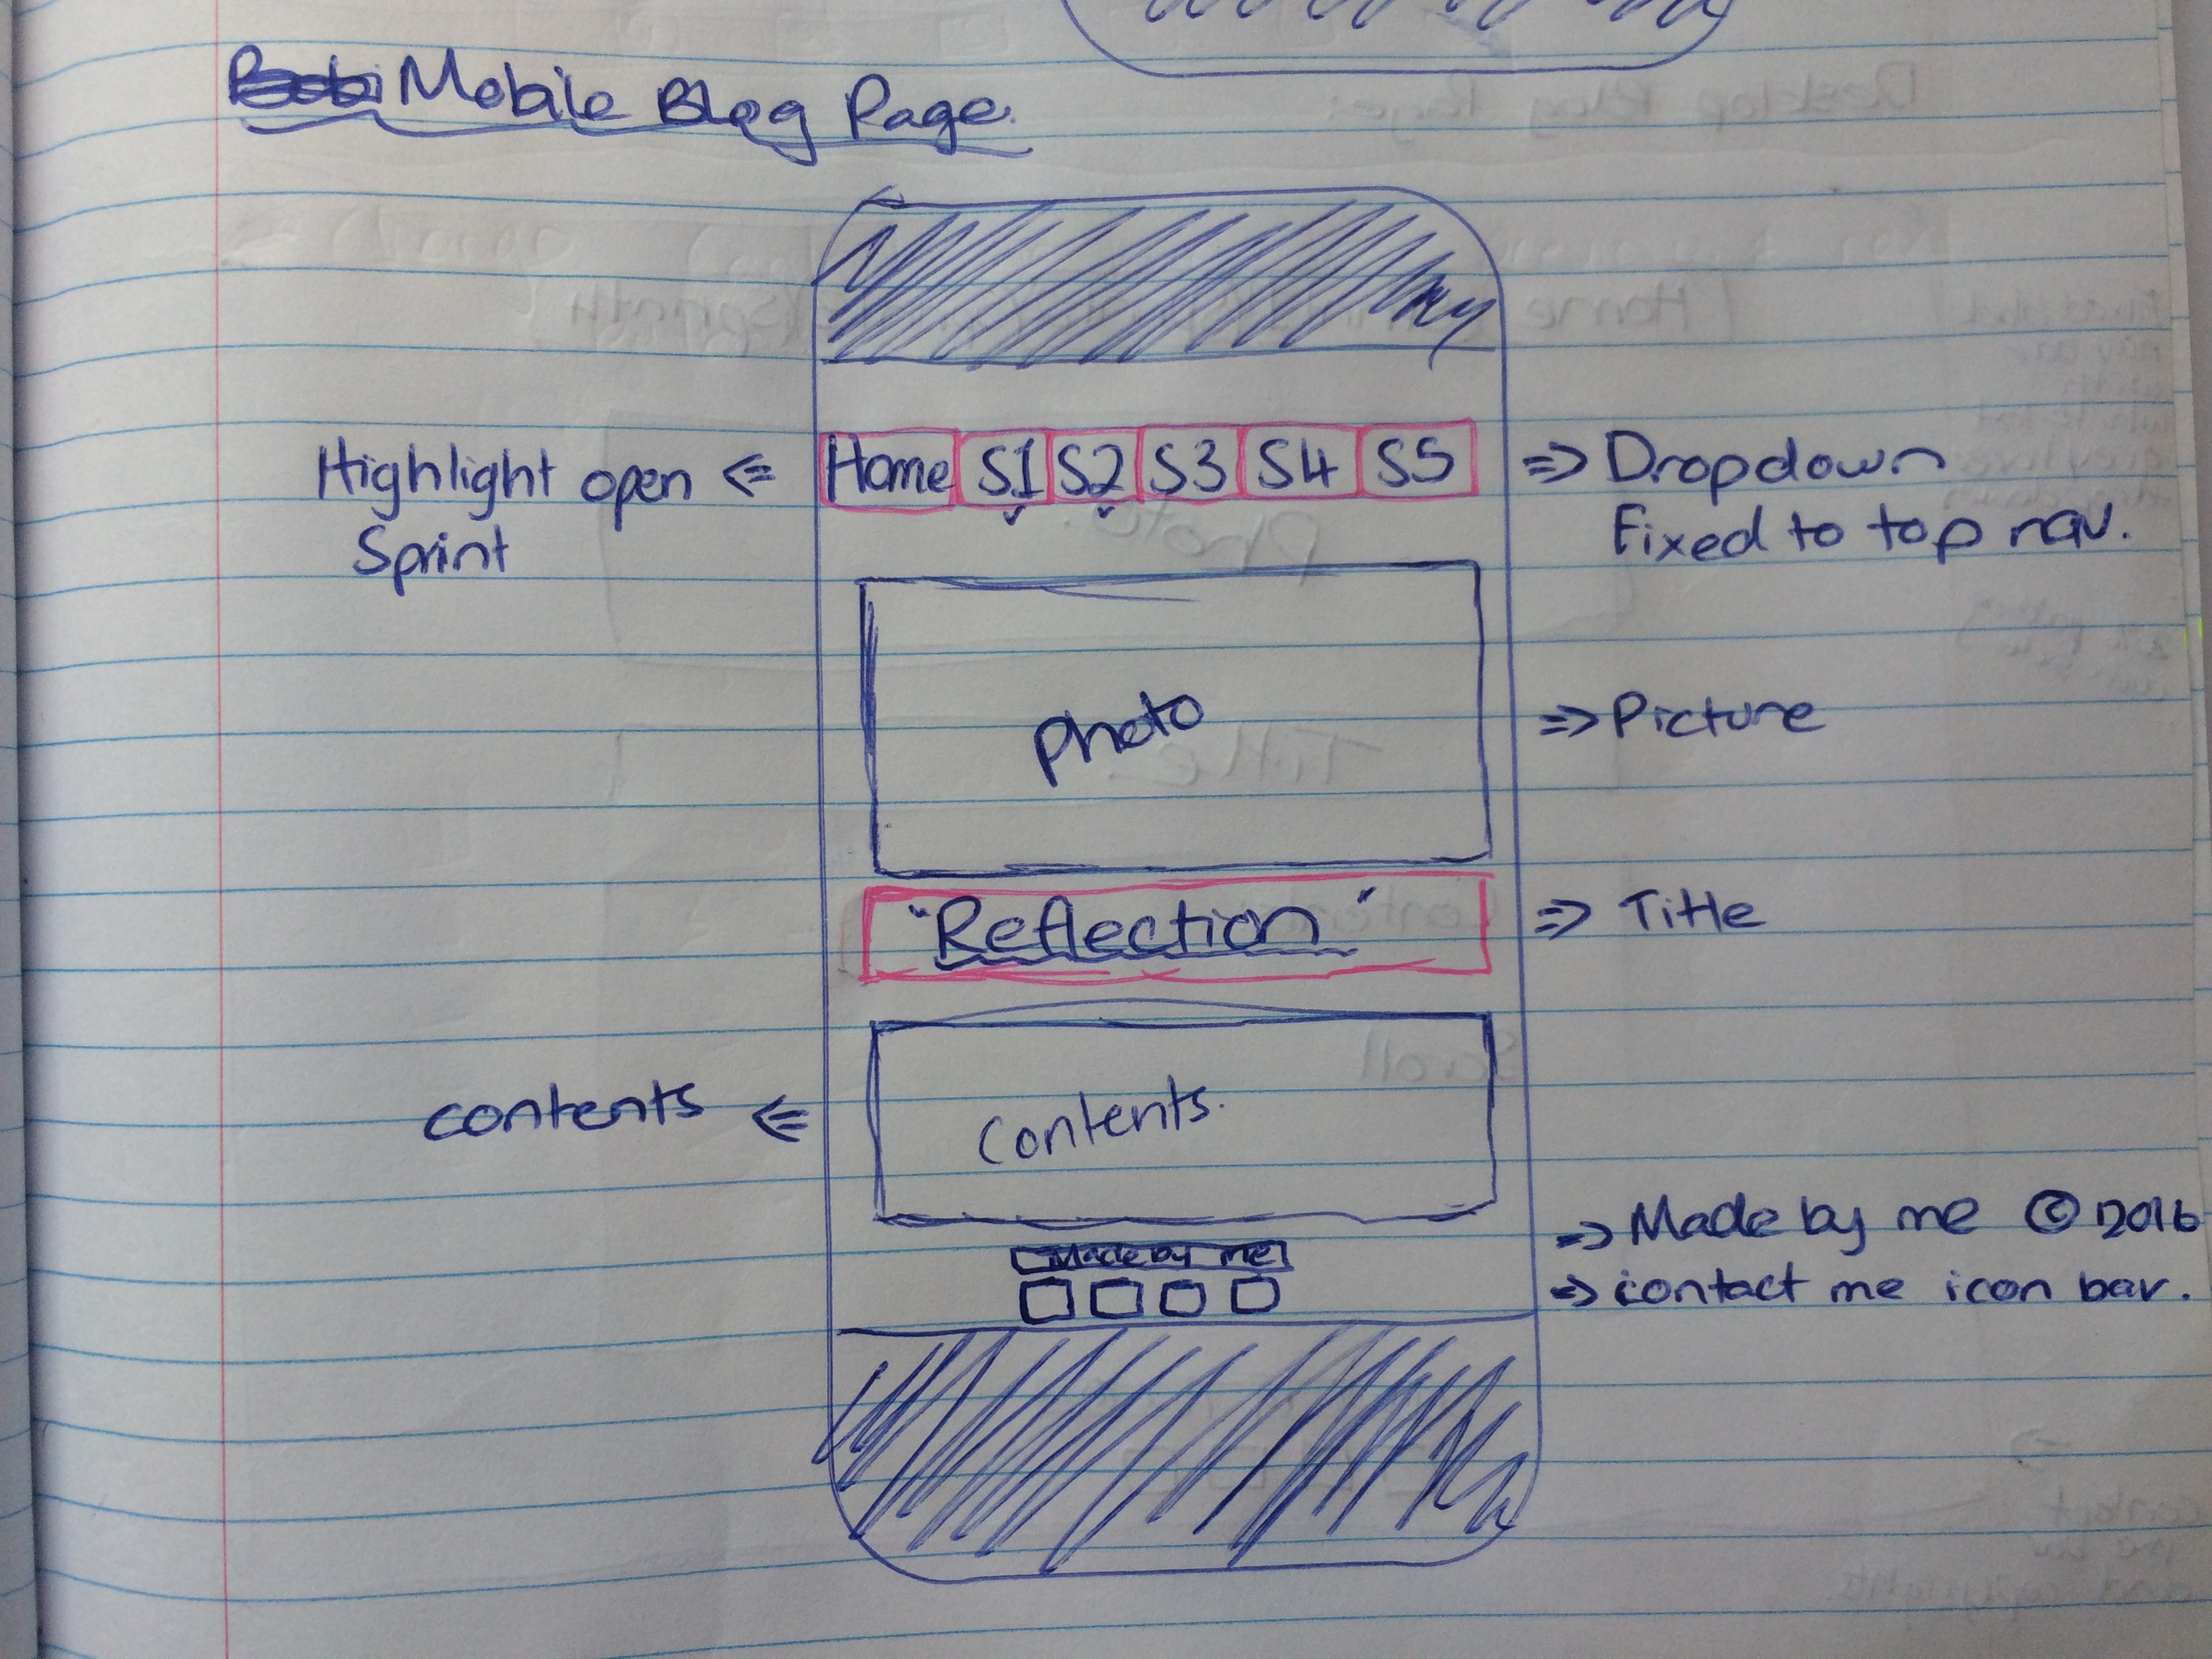 Mobile Blog Page.
Highlight open
Sprint
Home S1 S2 S3 S4 S5
=> Dropdown
Fixed to top nav.
Photo
=> Picture
"Reflection"
=> Title
contents
Contents.
Made by me
=> Made by me © 2016
=> contact me icon bar.